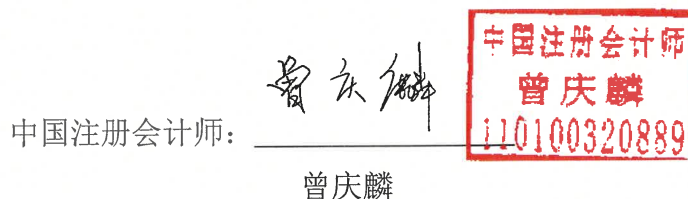 曾庆麟
中国注册会计师：
曾庆麟
中国注册会计师
曾庆麟
110100320889